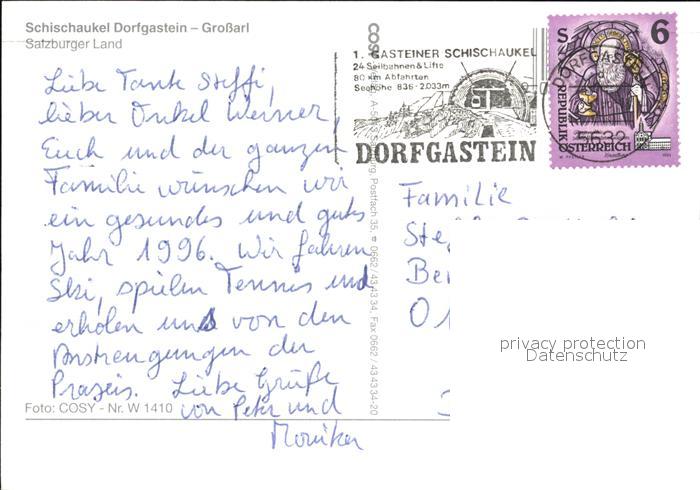 Schischaukel Dorfgastein – Großarl
Salzburger Land
Liebe Tante Steffi,
lieber Onkel Werner,
Euch und der ganzen
Familie wünschen wir
ein gesundes und gutes
Jahr 1996. Wir fahren
Ski, spielen Tennis und
erholen uns von den
Anstrengungen der
Praxis. Liebe Grüße
von Peter und
Monika
Foto: COSY - Nr. W 1410
COSY
Postfach 35, ☎ 0662/43 43 34, Fax 0662/43 43 34-20
1. GASTEINER SCHISCHAUKEL
24 Seilbahnen & Lifte
80 km Abfahrten
Seehöhe 836-2.033m
DORFGASTEIN
DORFGASTEIN
5632
S 6
REPUBLIK
ÖSTERREICH
Familie
Ste
Ber
privacy protection
Datenschutz